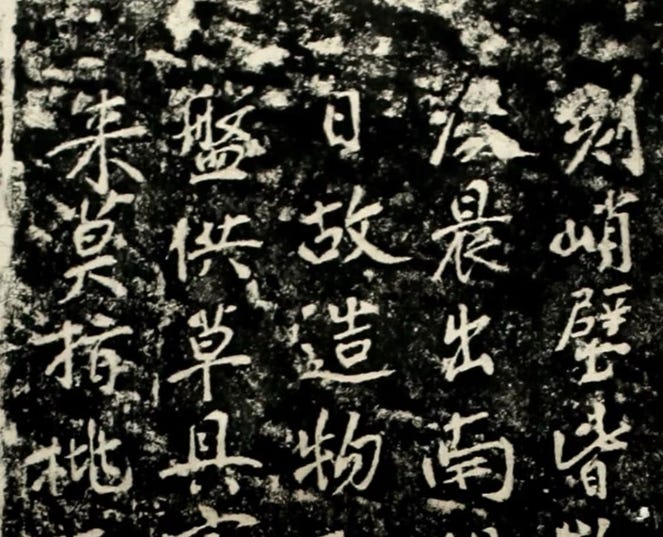 剡峭壁皆
凌晨出南
日故造物
盤供草具
来莫指桃